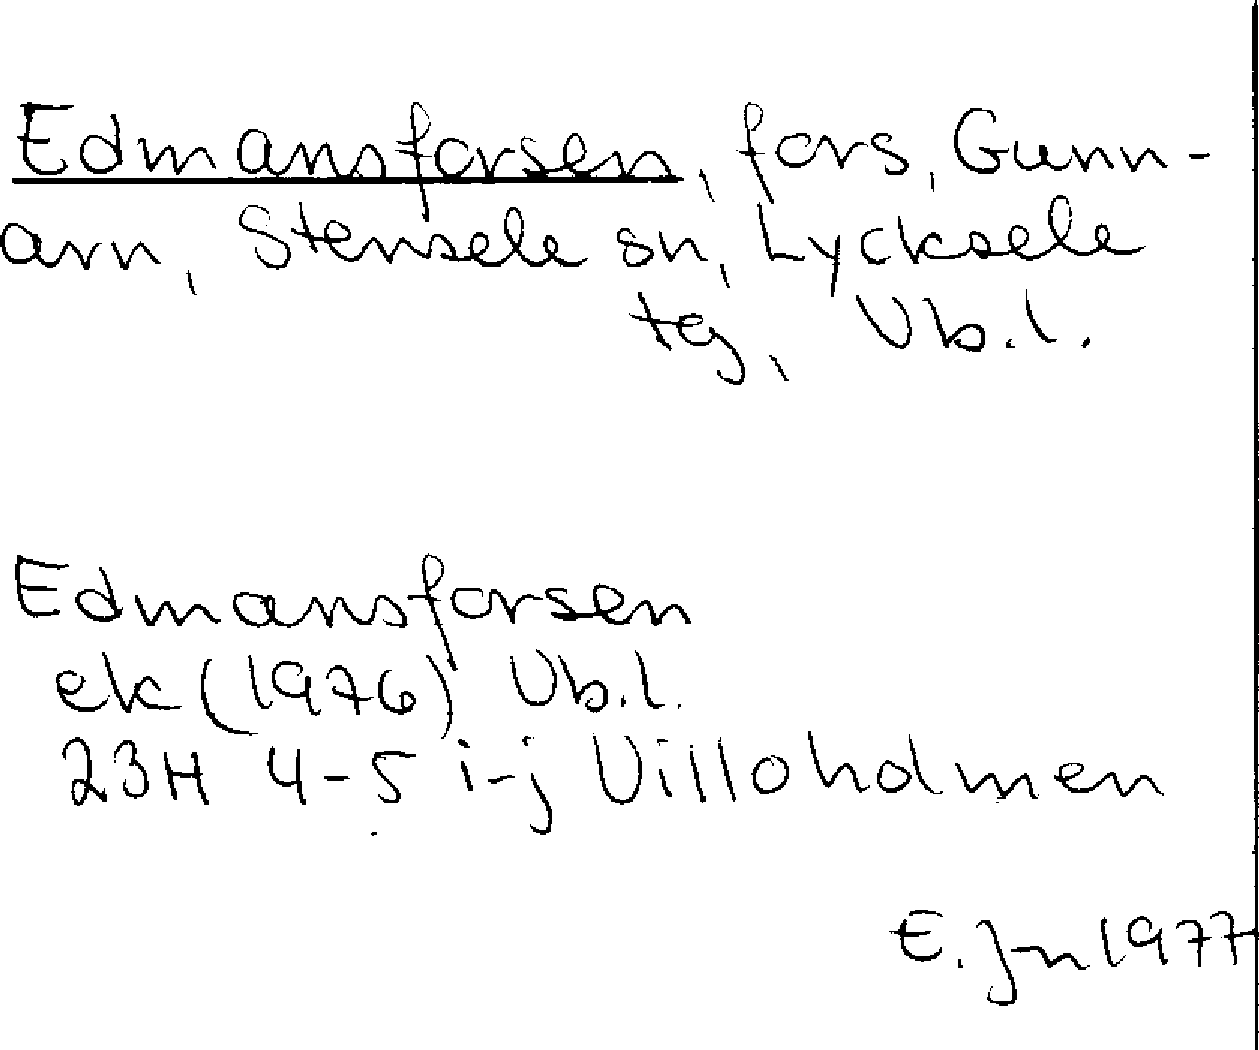 Edmansforsen, fors, Gunn-
arn, Stensele sn, Lycksele
tg, Vb.l.
Edmansforsen
ek (1976) Vb.l.
23H 4-5 i-j Villoholmen
E. Jn 1977